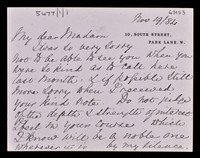 5477/1/1
Nov 19/84
10, SOUTH STREET,
PARK LANE. W.
My dear Madam
I was so very sorry
not to be able to see you when you
were so kind as to call here
last month: & if possible still
more sorry when I received
your kind note. Do not judge
of the depth & strength of interest
I feel in your course which
I know will be a noble one
wherever it is by my silence.